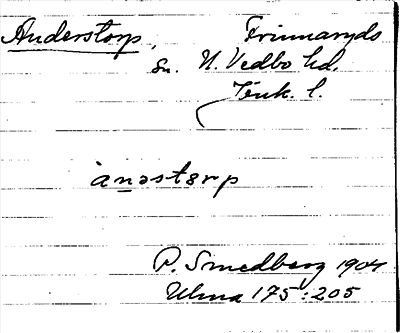 Anderstorp, Frinnaryds
sn. N. Vedbo hd.
Jönk. l.
ànəstɔrp
P. Smedberg 1904
Ulma 175:205